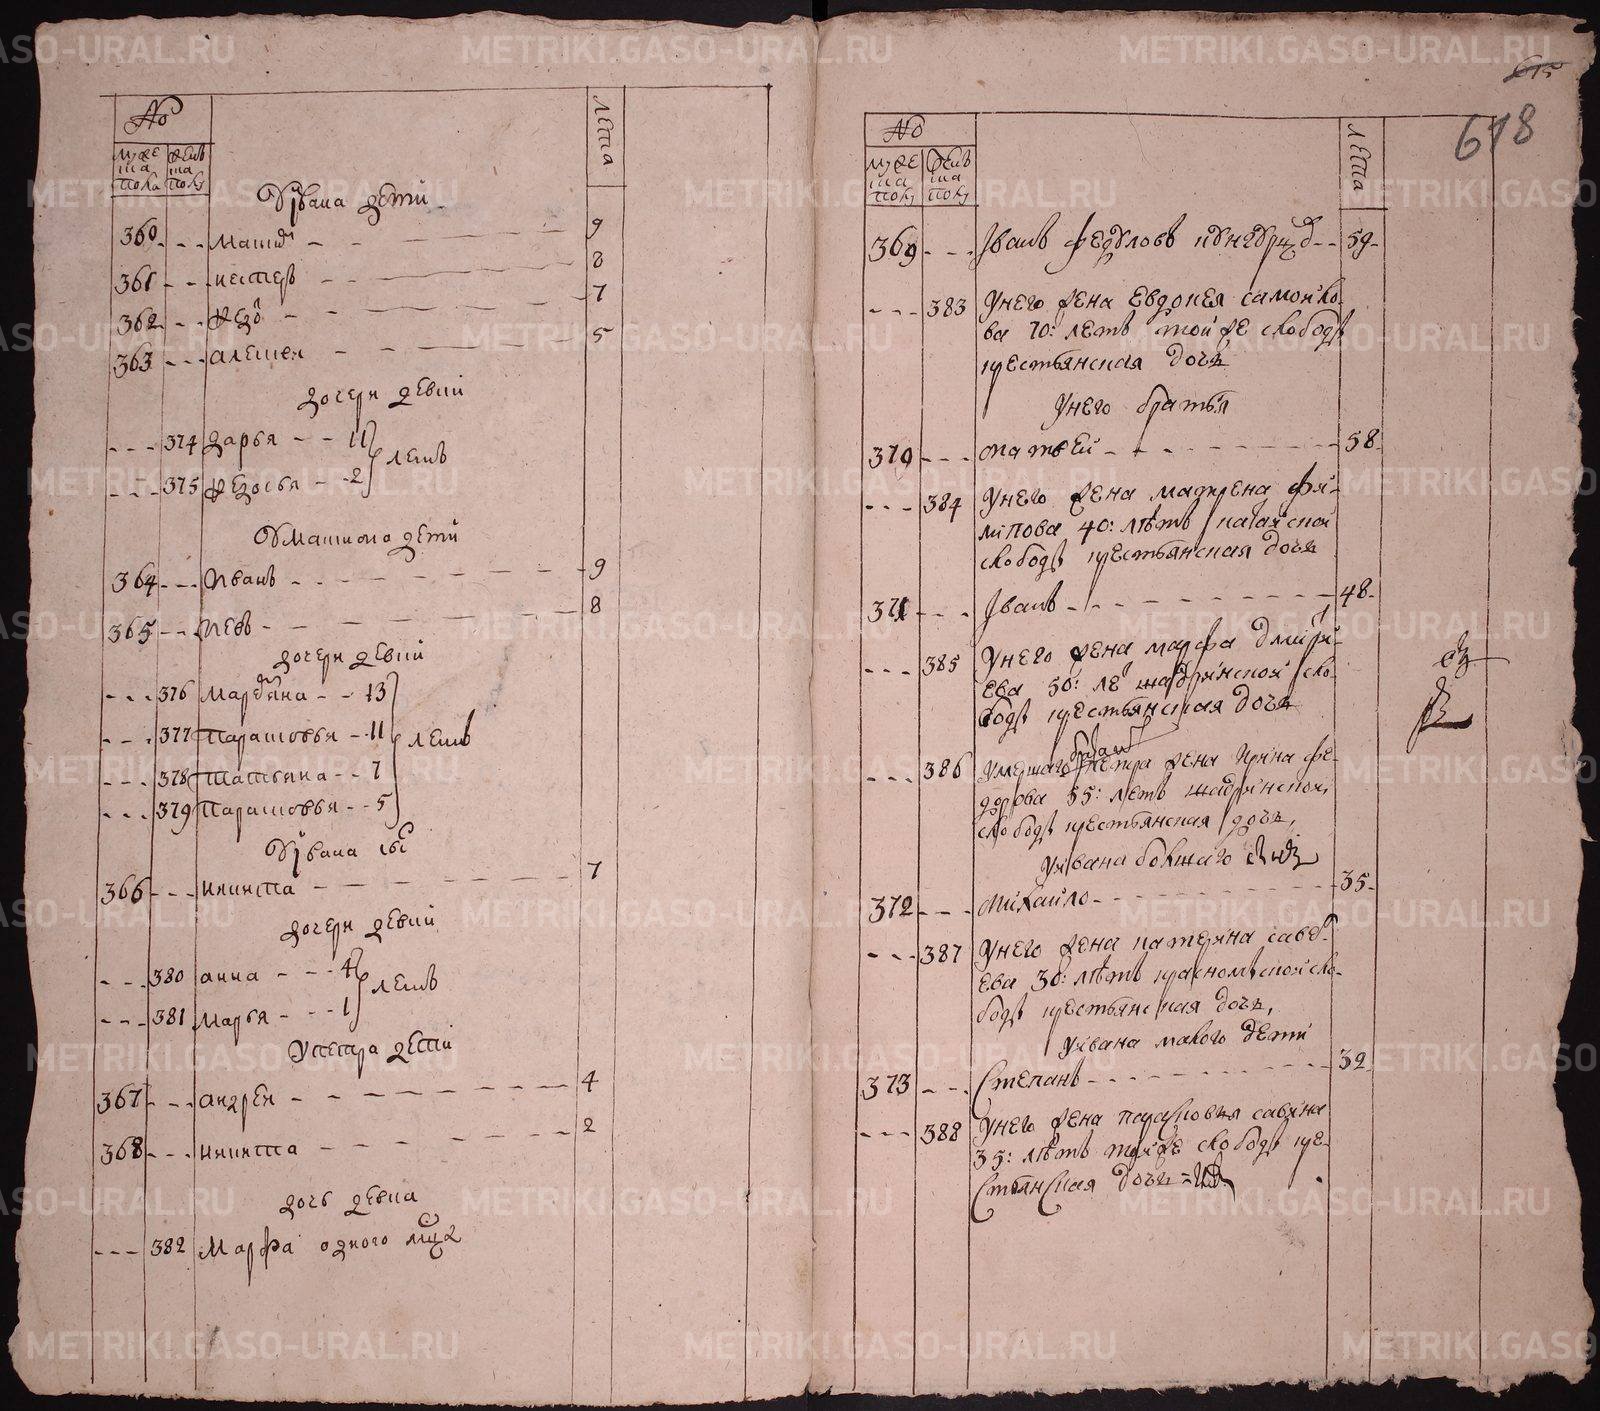 №
муже
ска
пола
женъ
ска
полу
лета
Уивана дети
360 --- матфи 9
361 --- нестеръ 8
362 --- Федо 7
363 --- алексеи 5
дочери девки
--- 374 дарья -- 11
--- 375 Федосья -- 2 летъ
Умаптоно дети
364 --- Иванъ 9
365 --- Левъ 8
дочери девки
--- 376 Марьяна -- 13
--- 377 Парасковья - 11 летъ
--- 378 Татьяна -- 7
--- 379 Парасковья -- 5
Уивана сы
366 --- никита 7
дочери девки
--- 380 анна --- 4 летъ
--- 381 Марья --- 1
Упетра дети
367 --- андреи 4
368 --- никита 2
дочь девка
--- 382 Марфа одного
№
муже
ска
полу
женъ
ска
полу
лета
618
369 --- Іванъ Федуловъ 59
--- 383 Унего жена Евдокея самоико
ва 70: летъ тои же слободы
крестьянская дочь
Унего братья
370 --- матвеи 58
--- 384 Унего жена матрена Фи
липова 40: лѣтъ катаиской
слободы крестьянская дочь
371 --- Іванъ 48
--- 385 Унего жена марфа дмитри
ева 50: ле шадринской сло
боды крестьянская дочь
брата
--- 386 Умершаго петра жена Ирина фе
дорова 55: летъ шадринской
слободы крестьянская дочь,
Уивана большаго
372 --- михаило 35
--- 387 Унего жена катерина савел
ева 30: лѣтъ красномыской сло
боды крестьянская дочь,
Уивана малого дети
373 --- Степанъ 32
--- 388 Унего жена парасковья савина
35: лѣтъ тоиже слободы кре
стьянская дочь